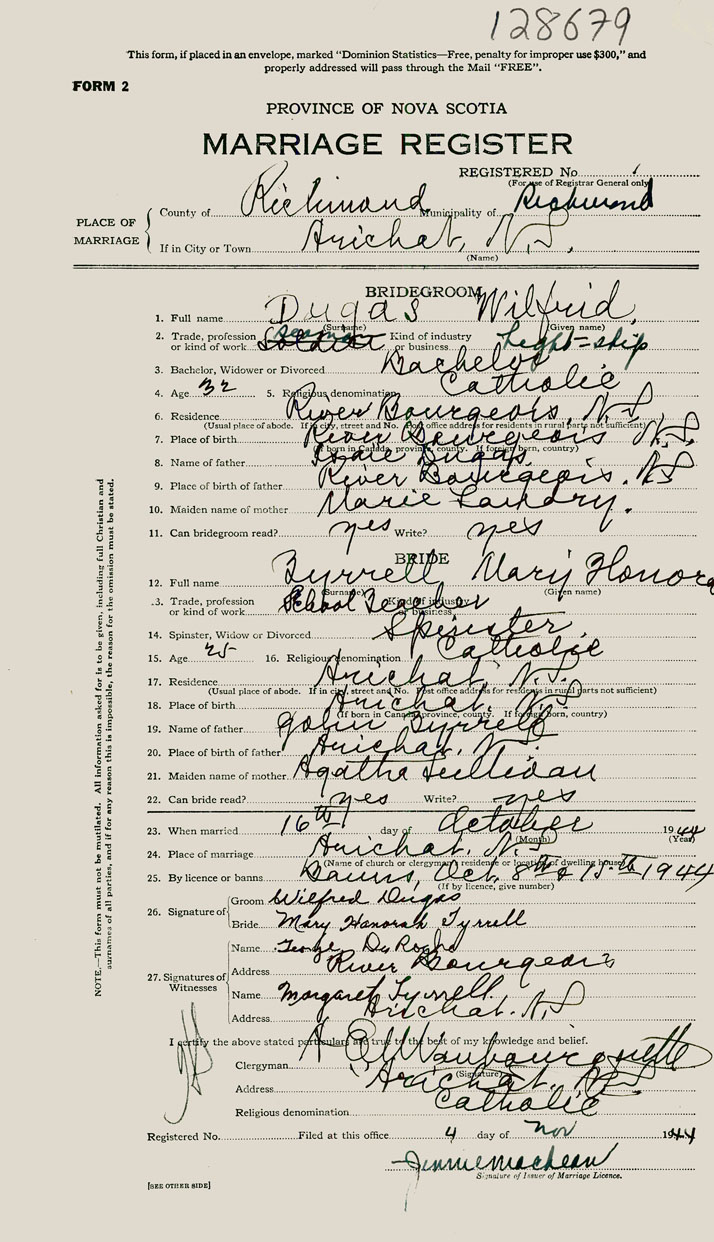 128679
This form, if placed in an envelope, marked "Dominion Statistics—Free, penalty for improper use $300," and
properly addressed will pass through the Mail "FREE".
FORM 2
PROVINCE OF NOVA SCOTIA
MARRIAGE REGISTER
REGISTERED No
(For use of Registrar General only)
PLACE OF MARRIAGE
County of Richmond Municipality of Richmond
If in City or Town Arichat, N.S.
(Name)
BRIDEGROOM
1. Full name Dugas Wilfrid
(Surname) (Given name)
2. Trade, profession or kind of work Soldier Seaman Kind of industry or business Light-ship
3. Bachelor, Widower or Divorced Bachelor
4. Age 32 5. Religious denomination Catholic
6. Residence River Bourgeois, N.S.
(Usual place of abode. If in city, street and No. Post office address for residents in rural parts not sufficient)
7. Place of birth River Bourgeois N.S.
(If born in Canada, province, county. If foreign born, country)
8. Name of father Dugas
9. Place of birth of father River Bourgeois. N.S
10. Maiden name of mother Marie Landry.
11. Can bridegroom read? yes Write? yes
BRIDE
12. Full name Tyrrell Mary Honora
(Surname) (Given name)
13. Trade, profession or kind of work School Teacher Kind of industry or business
14. Spinster, Widow or Divorced Spinster
15. Age 25 16. Religious denomination Catholic
17. Residence Arichat, N.S.
(Usual place of abode. If in city, street and No. Post office address for residents in rural parts not sufficient)
18. Place of birth Arichat, N.S.
(If born in Canada, province, county. If foreign born, country)
19. Name of father John Tyrrell
20. Place of birth of father Arichat, N.S.
21. Maiden name of mother Agatha Sullivan
22. Can bride read? yes Write? yes
23. When married 16th day of October 1944
(Month) (Year)
24. Place of marriage Arichat, N.S
(Name of church or clergyman's residence or location of dwelling house)
25. By licence or banns Banns, Oct. 8th & 15th 1944
(If by licence, give number)
26. Signature of
Groom Wilfred Dugas
Bride Mary Hanorah Tyrrell
27. Signatures of Witnesses
Name George DuRoche
Address River Bourgeois
Name Margaret Tyrrell.
Address Arichat. N.S
I certify the above stated particulars are true to the best of my knowledge and belief.
Clergyman
(Signature)
Address Arichat. N.S
Religious denomination Catholic
Registered No. Filed at this office 4 day of Nov 1944
Signature of Issuer of Marriage Licence.
[SEE OTHER SIDE]
NOTE.—This form must not be mutilated. All information asked for is to be given, including full Christian and
surnames of all parties, and if for any reason this is impossible, the reason for the omission must be stated.